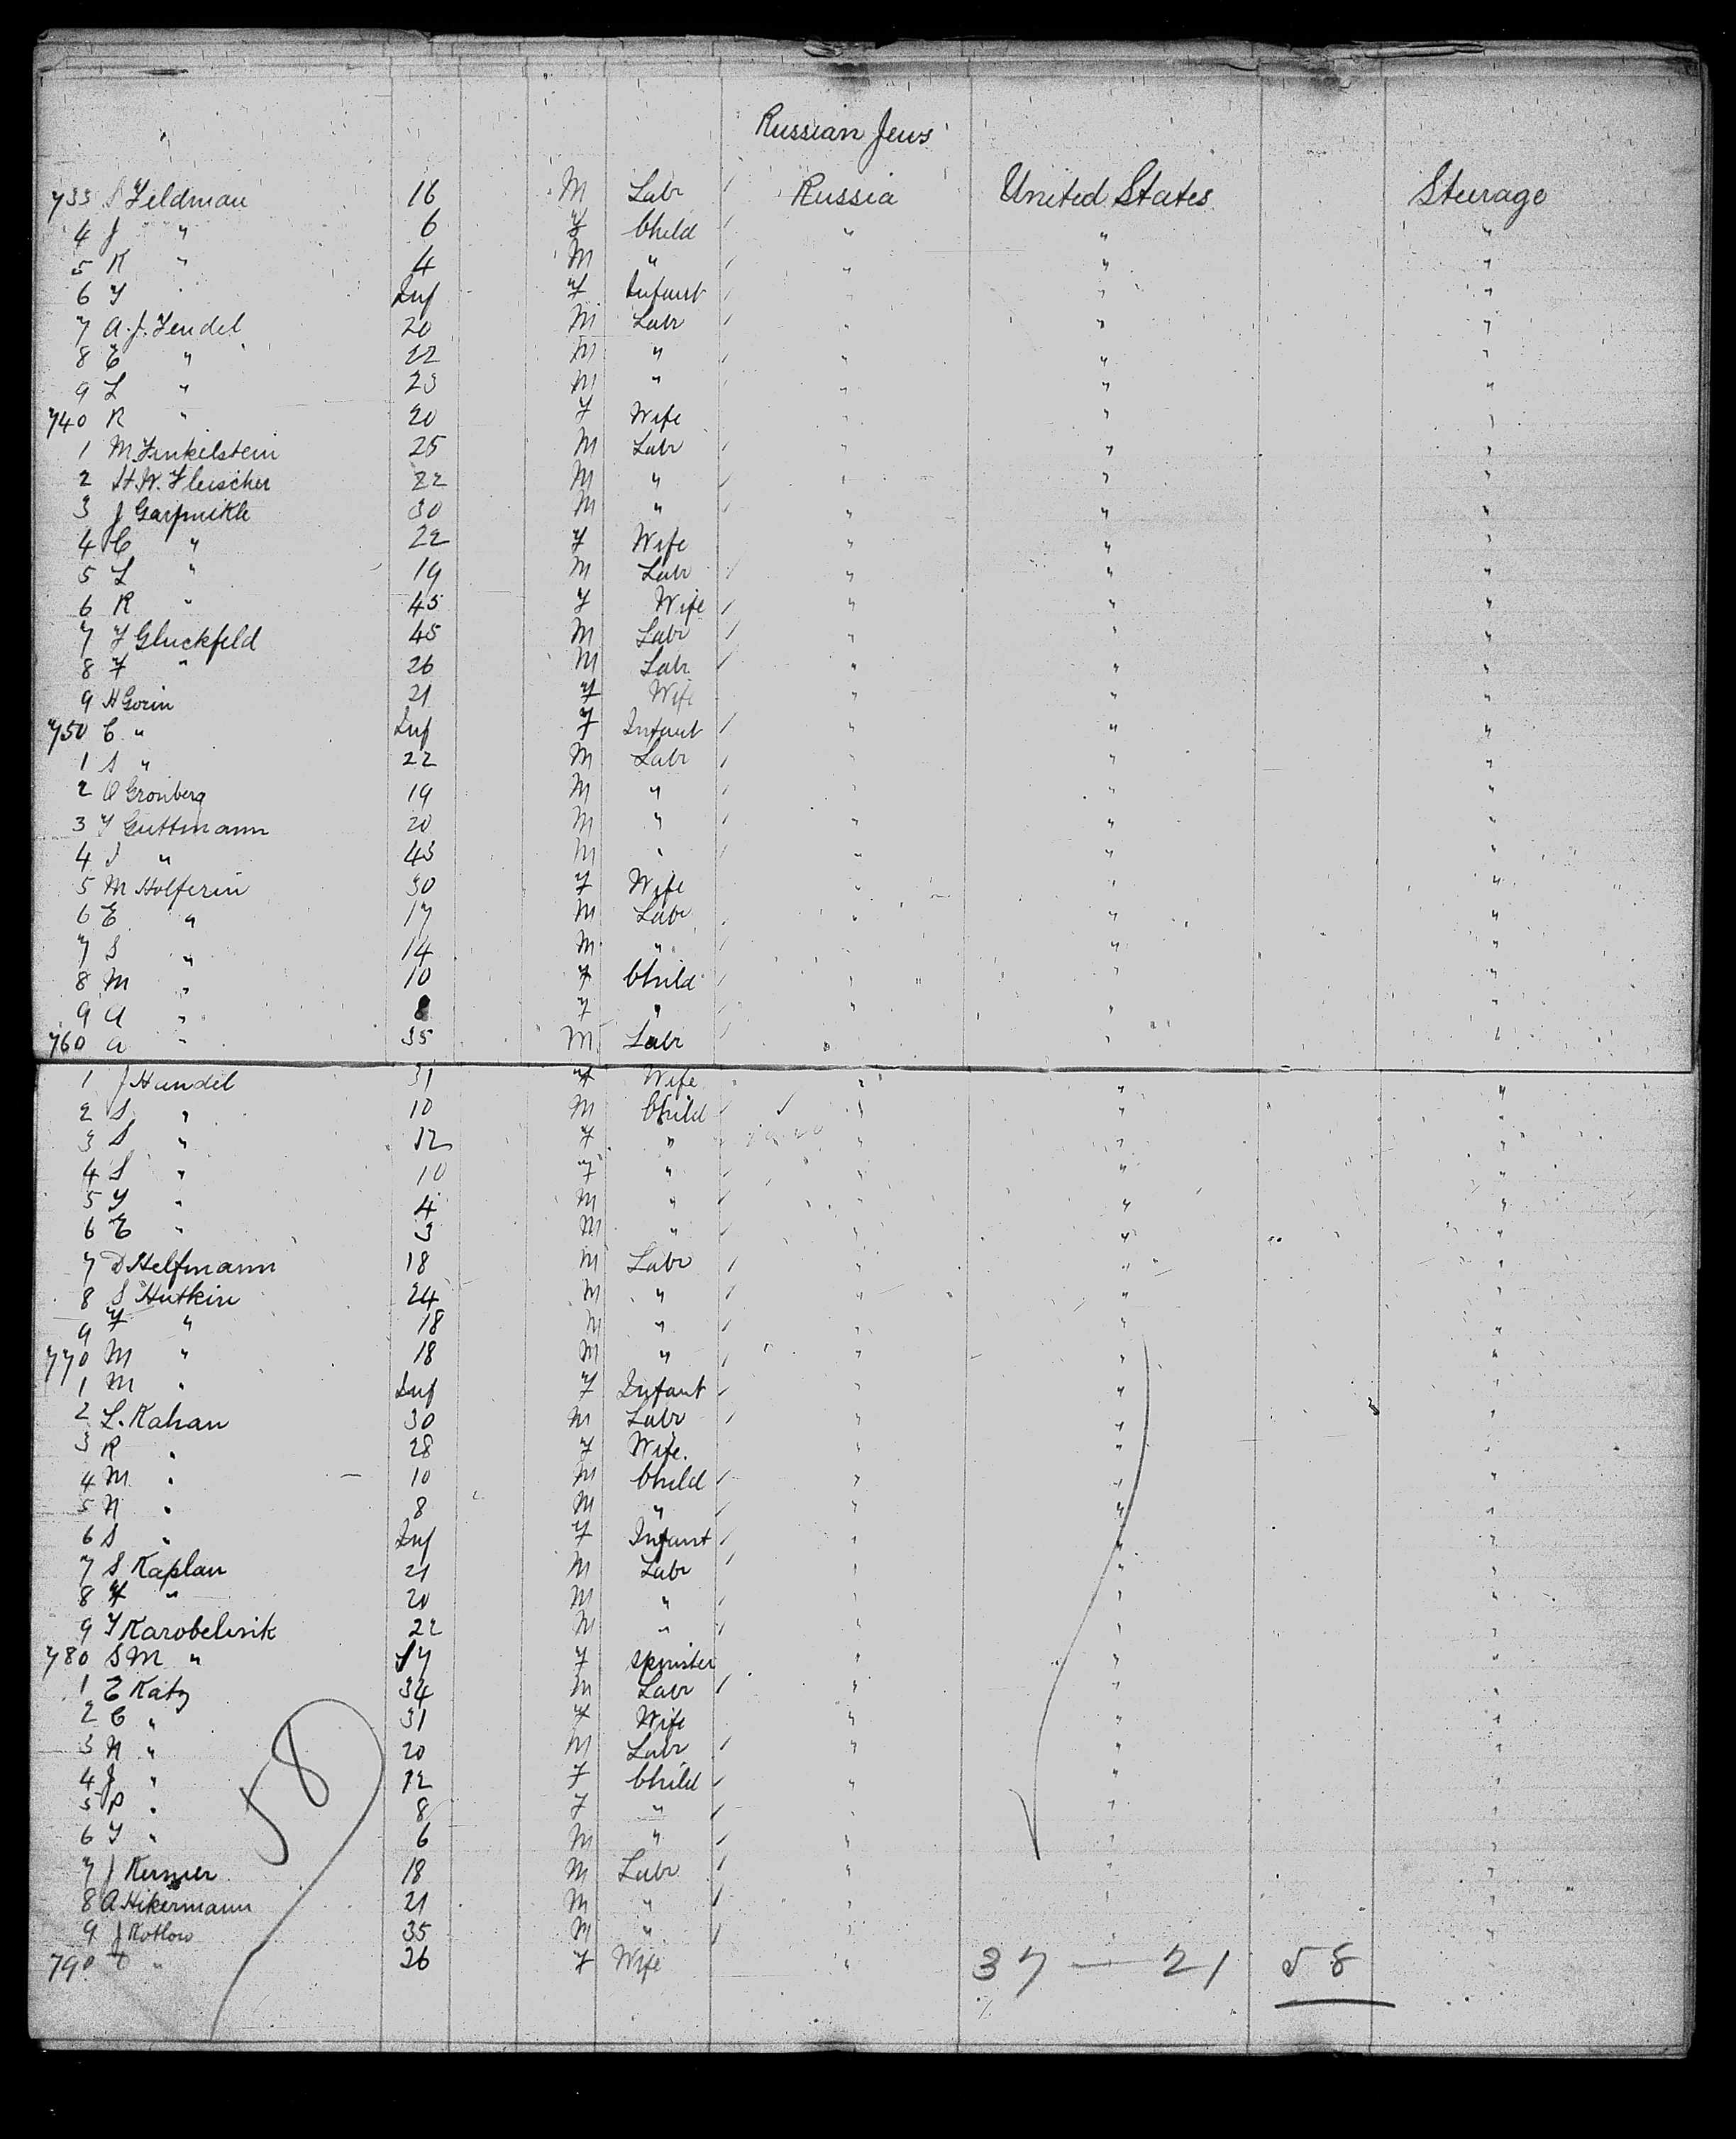 Russian Jews
733 S Feldman 16 M Labr Russia United States Steerage
4 J " 6 F Child " " "
5 K " 4 M " " " "
6 Y " Inf F Infant " " "
7 A. J. Fendel 20 M Labr " " "
8 E " 22 M " " " "
9 L " 23 M " " " "
740 R " 20 F Wife " " "
1 M. Finkelstein 25 M Labr " " "
2 H. W. Fleischer 22 M " " " "
3 J 30 M " " " "
4 C " 22 F Wife " " "
5 L " 19 M Labr " " "
6 R " 45 F Wife " " "
7 Y Gluckfeld 45 M Labr " " "
8 F " 26 M Labr " " "
9 H Gorin 21 F Wife " " "
750 C " Inf F Infant " " "
1 S " 22 M Labr " " "
2 O Gronberg 19 M " " " "
3 Y Guttmann 20 M " " " "
4 I " 43 M " " " "
5 M Holferin 30 F Wife " " "
6 E " 17 M Labr " " "
7 S " 14 M " " " "
8 M " 10 F Child " " "
9 A " 8 F " " " "
760 A " 35 M Labr " " "
1 J Handel 31 F Wife " " "
2 S " 10 M Child " " "
3 S " 12 F " " " "
4 S " 10 F " " " "
5 Y " 4 M " " " "
6 E " 3 M " " " "
7 D Helfmann 18 M Labr " " "
8 S Hutkin 24 M " " " "
9 F " 18 M " " " "
770 M " 18 M " " " "
1 M " Inf F Infant " " "
2 L. Kahan 30 M Labr " " "
3 R " 28 F Wife. " " "
4 M " 10 M Child " " "
5 N " 8 M " " " "
6 S " Inf F Infant " " "
7 S Kaplan 21 M Labr " " "
8 F " 20 M " " " "
9 Y Karobelink 22 M " " " "
780 S M " 17 F Spinster " " "
1 E Katz 34 M Labr " " "
2 C " 31 F Wife " " "
3 N " 20 M Labr " " "
4 J " 12 F Child " " "
5 P " 8 F " " " "
6 Y " 6 M " " " "
7 J 18 M Labr " " "
8 A Hikermann 21 M " " " "
9 J Kotlow 35 M " " " "
790 " 26 F Wife " "
58
37 — 21 58